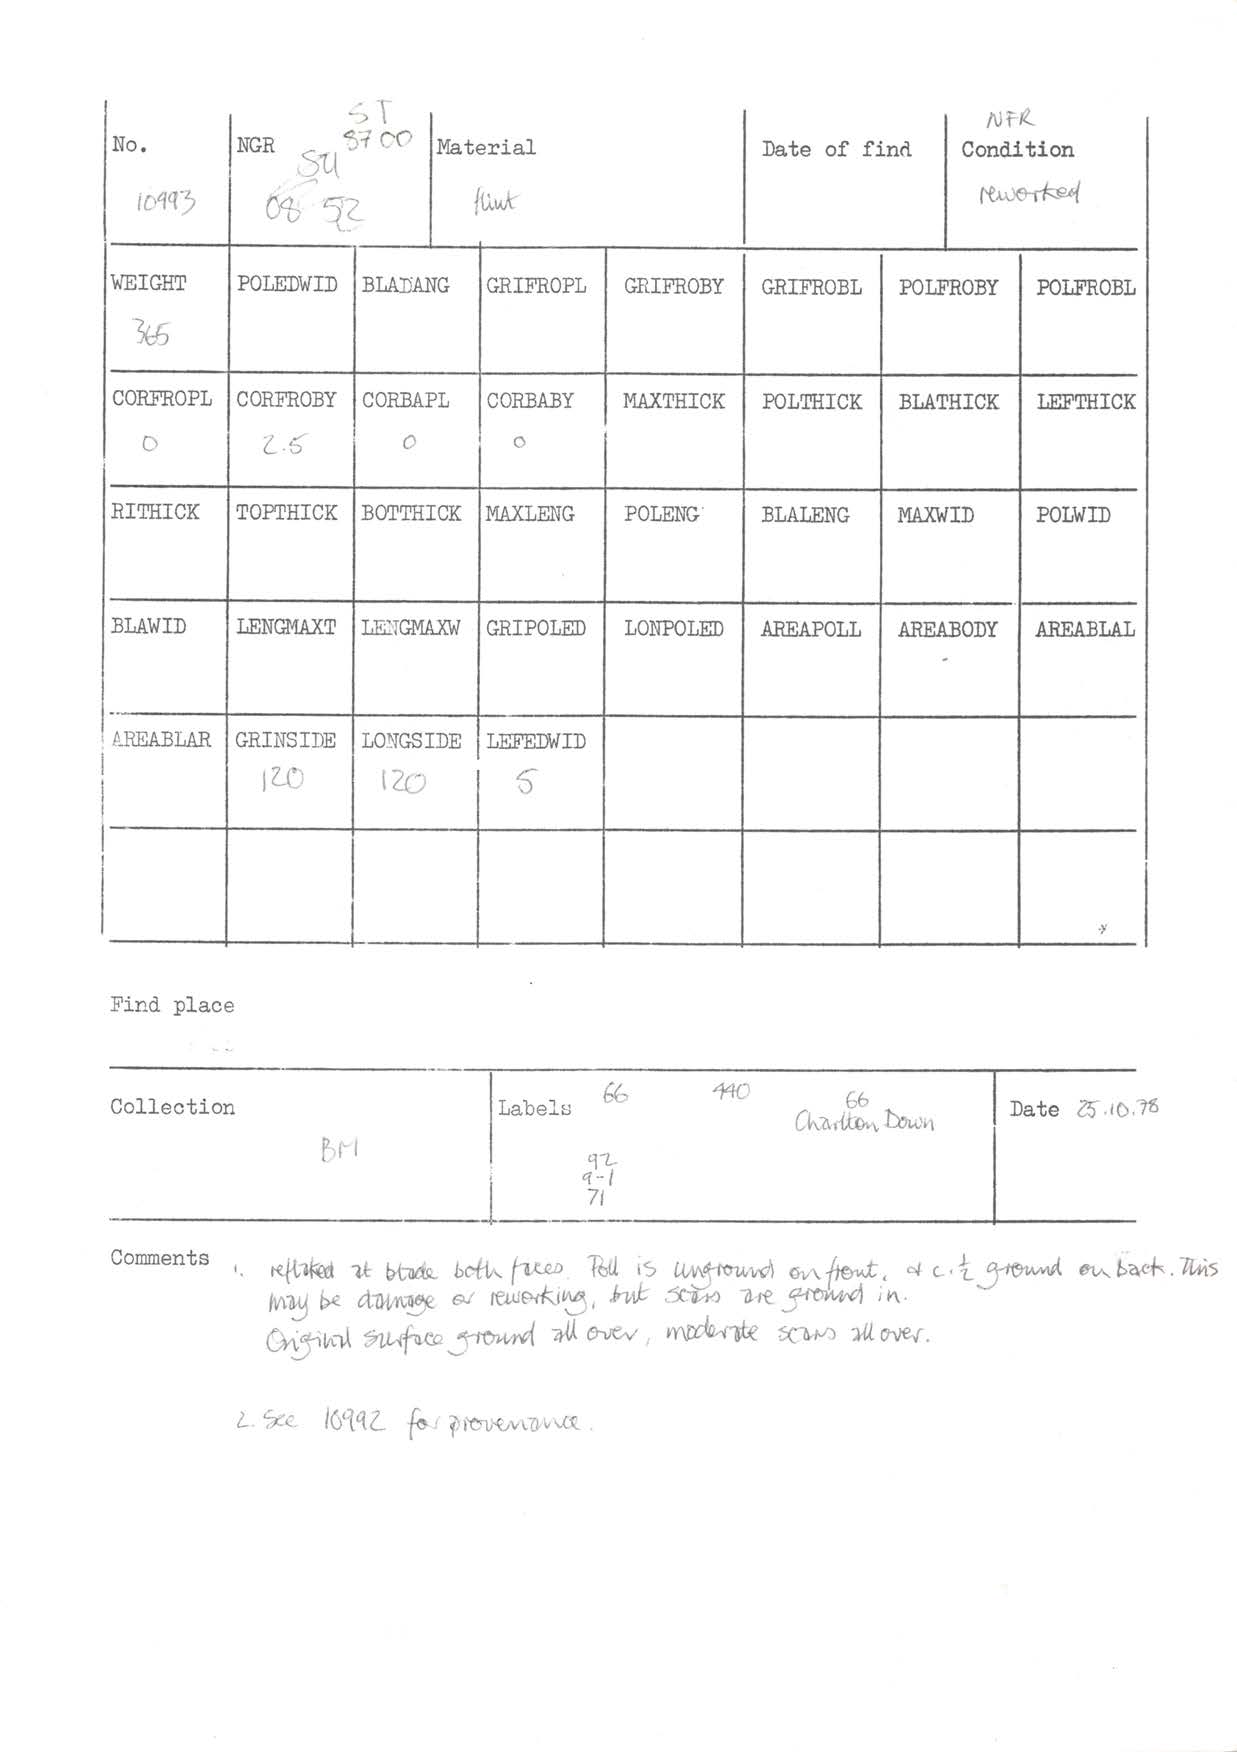 No.
10993
NGR
ST
8700
SU
08 52
Material
flint
Date of find
NFR
Condition
reworked
WEIGHT POLEDWID BLADANG GRIFROPL GRIFROBY GRIFROBL POLFROBY POLFROBL
365
CORFROPL CORFROBY CORBAPL CORBABY MAXTHICK POLTHICK BLATHICK LEFTHICK
0 2.5 0 0
RITHICK TOPTHICK BOTTHICK MAXLENG POLENG BLALENG MAXWID POLWID
BLAWID LENGMAXT LENGMAXW GRIPOLED LONPOLED AREAPOLL AREABODY AREABLAL
AREABLAR GRINSIDE LONGSIDE LEFEDWID
120 120 5
Find place
Collection
BM
Labels 66 440 66
Charlton Down
92
9-1
71
Date 25.10.78
Comments 1. reflaked at blade both faces. Poll is unground on front, & c. ½ ground on back. This
may be damage or reworking, but scars are ground in.
Original surface ground all over, moderate scars all over.
2. See 10992 for provenance.